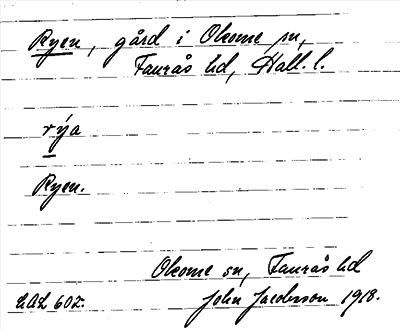 Ryen, gård i Okome sn,
Faurås hd, Hall. l.
rýa
Ryen.
Okome sn, Faurås hd
John Jacobsson 1918.